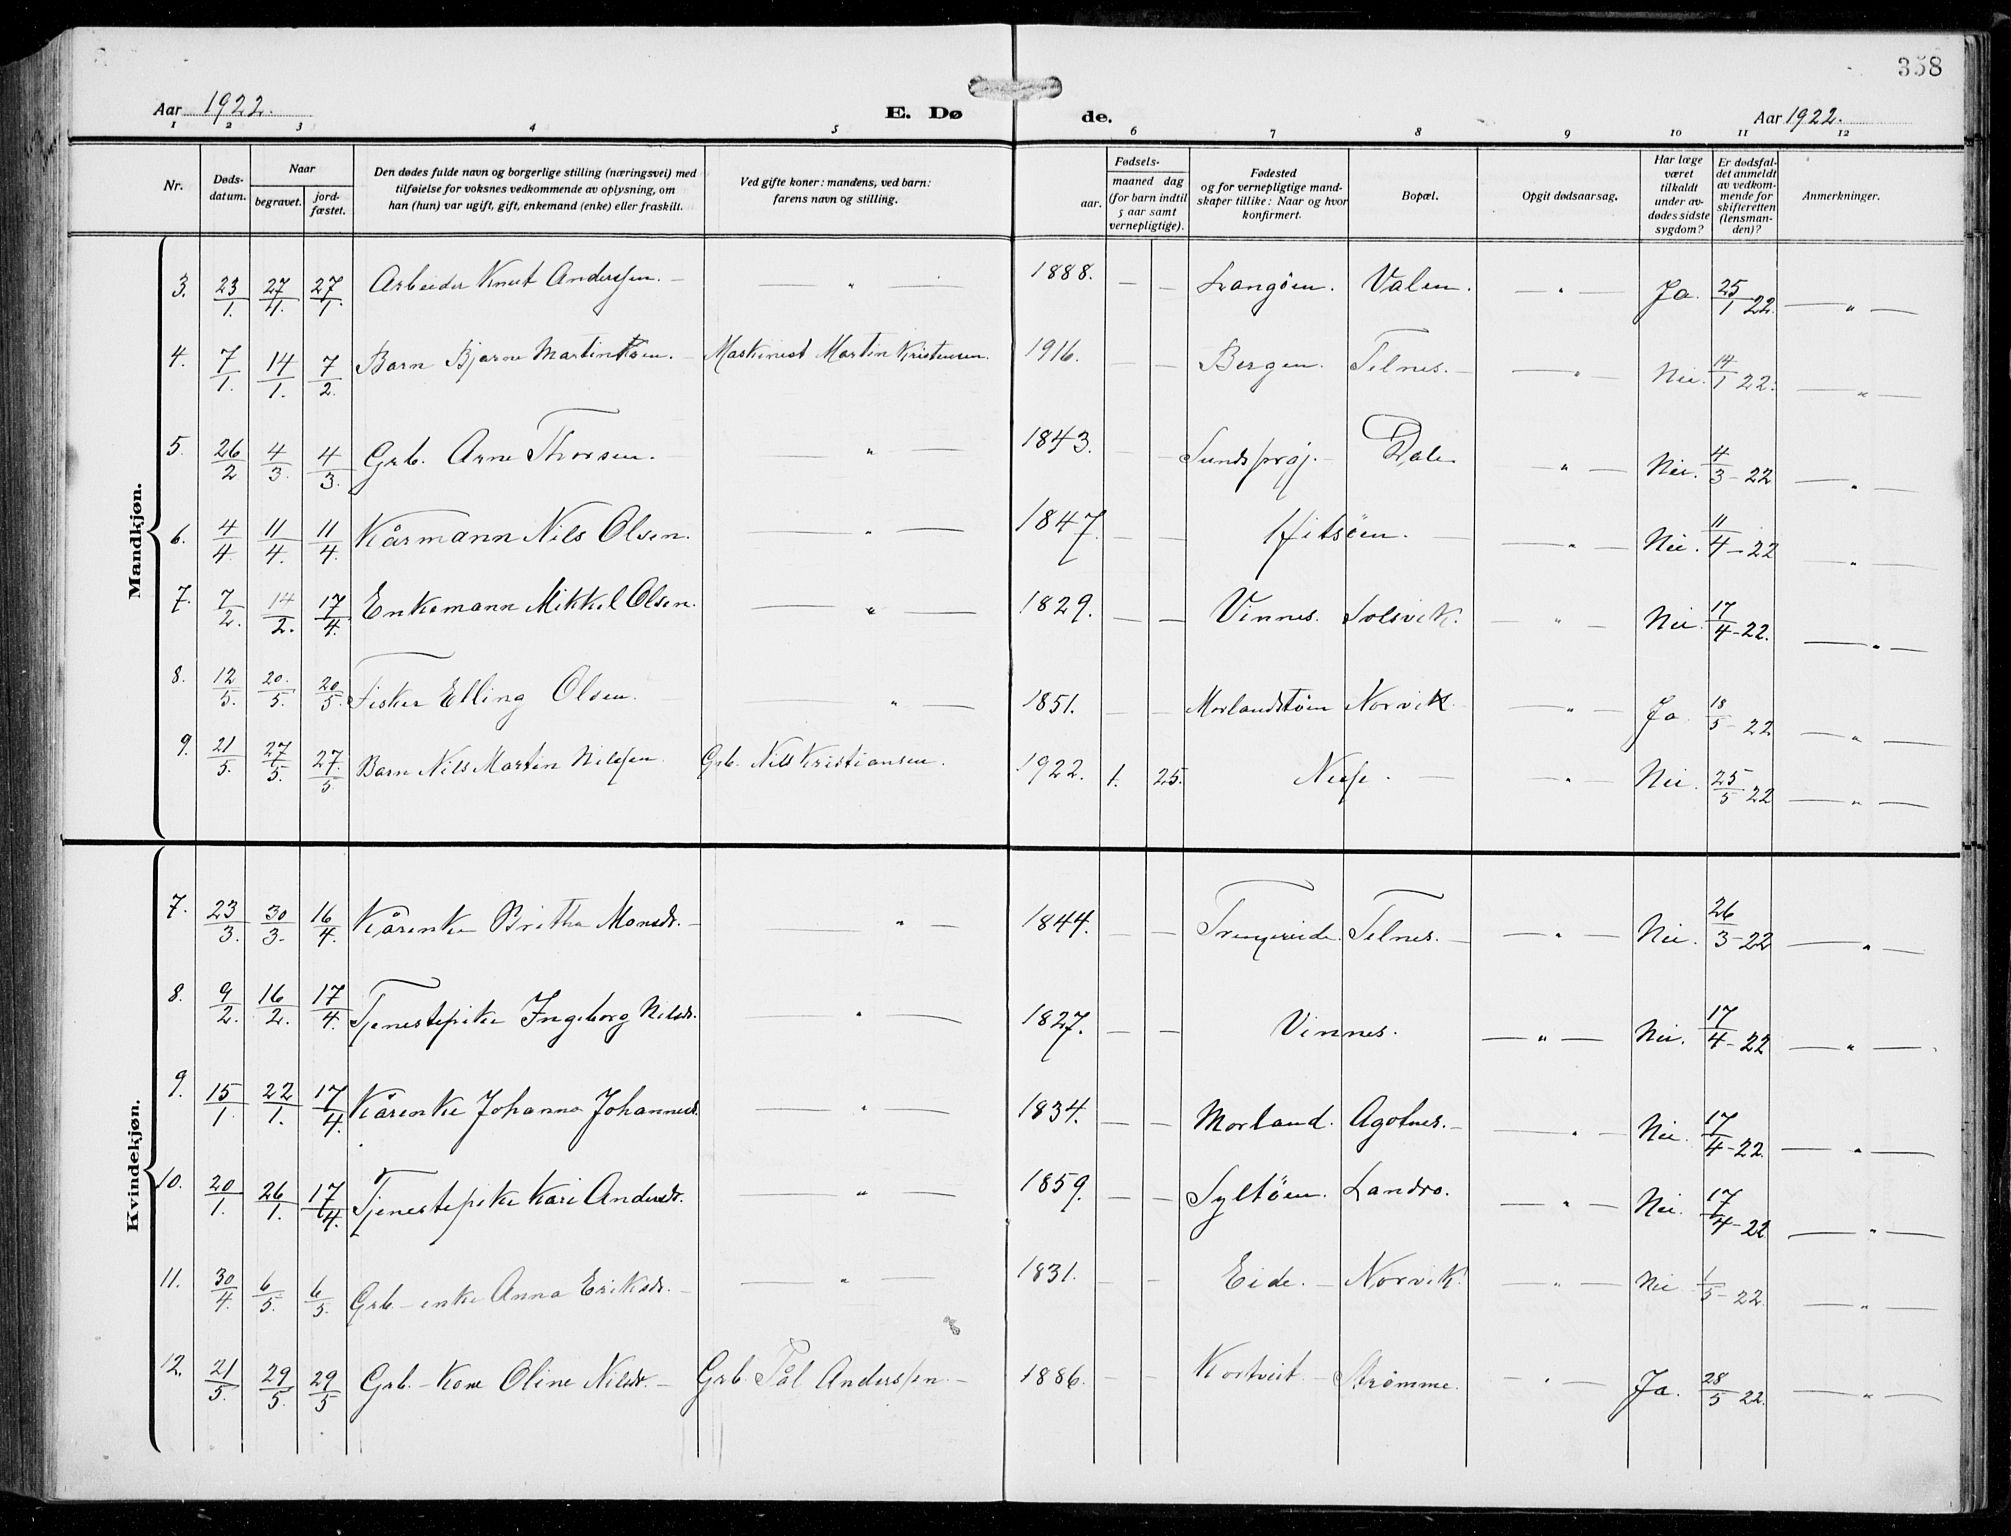 358
Aar 1922. E. Dø de. Aar 1922.
1 2 3 4 5 6 7 8 9 10 11 12
Nr. Døds-datum. Naar begravet. jord-fæstet. Den dødes fulde navn og borgerlige stilling (næringsvei) med tilføielse for voksnes vedkommende av oplysning, om han (hun) var ugift, gift, enkemand (enke) eller fraskilt. Ved gifte koner: mandens, ved barn: farens navn og stilling. Fødsels- aar. maaned dag (for barn indtil 5 aar samt vernepligtige). Fødested og for vernepligtige mand-skaper tillike: Naar og hvor konfirmert. Bopæl. Opgit dødsaarsag. Har læge været tilkaldt under av-dødes sidste sygdom? Er dødsfal-det anmeldt av vedkom-mende for skifteretten (lensman-den)? Anmerkninger.
Mandkjøn.
3. 23/1. 27/4. 27/1. Arbeider Knut Anderssen. — — „ — 1888. — — Langöen. Valen. — „ — Ja. 25/1 22. — „ —
4. 7/1. 14/1. 7/2. Barn Bjarne Martin Maskinist Martin Kristensen. 1916. — — Bergen. Telnes. — — „ — Nei. 14/1 22. — „ —
5. 26/2 4/3. 4/3. Grb. Arne Thorsen. — „ — 1843. — — Dale — „ — Nei. 4/3 - 22 — „ —
6. 4/4. 11/4. 11/4. Kårmann Nils Olsen. — „ — 1847. — — Hitsöen. — — „ — Nei. 11/4 - 22 — „ —
7. 7/2. 14/2. 17/4. Enkemann Mikkel Olsen. — „ — 1829. — — Vinnes. Solsvik. — „ — Nei. 17/4 - 22. — „ —
8. 12/5. 20/5. 20/5. Fisker Elling Olsen. — „ — 1851. — — Morlandstöen Norvik — „ — Ja. 18/5 - 22 — „ —
9. 21/5. 27/5. 27/5 Barn Nils Martin Nilssen Grb. Nils Kristiansen. 1922. 1. 25. — — „ — Nei. 25/5 22 — „ —
Kvindekjøn.
7. 23/3. 30/3. 16/4. Kårenke Britha Monsdr. — — „ — 1844. — — Telnes. — — „ — Nei. 26/3 - 22 — „ —
8. 9/2. 16/2. 17/4. Tjenestepike Ingeborg Nilsdr. — „ — 1827. — — Vinnes. — „ — Nei. 17/4 - 22 — „ —
9. 15/1. 22/1. 17/4. Kårenke Johanna Johannesdr. — „ — 1834. — — Morland. Agotnes. — — „ — Nei. 17/4 - 22. — „ —
10. 20/1. 26/1. 17/4. Tjenestepike Kari Andersdr. — „ — 1859. — — Syltöen. Landro. — „ — Nei. 17/4 - 22 — „ —
11. 30/4. 6/5. 6/5. Grb - enke Anna Eriksdr. — — „ — 1831. — — Eide. — Norvik. — „ — Nei 1/5 - 22. — „ —
12. 21/5. 29/5. 29/5 Grb. - Kone Oline Nilsdr. — Grb. Pål Anderssen. — 1886. — — Kortveit. — Strömme. — „ — Ja. 28/5 22. — „ —